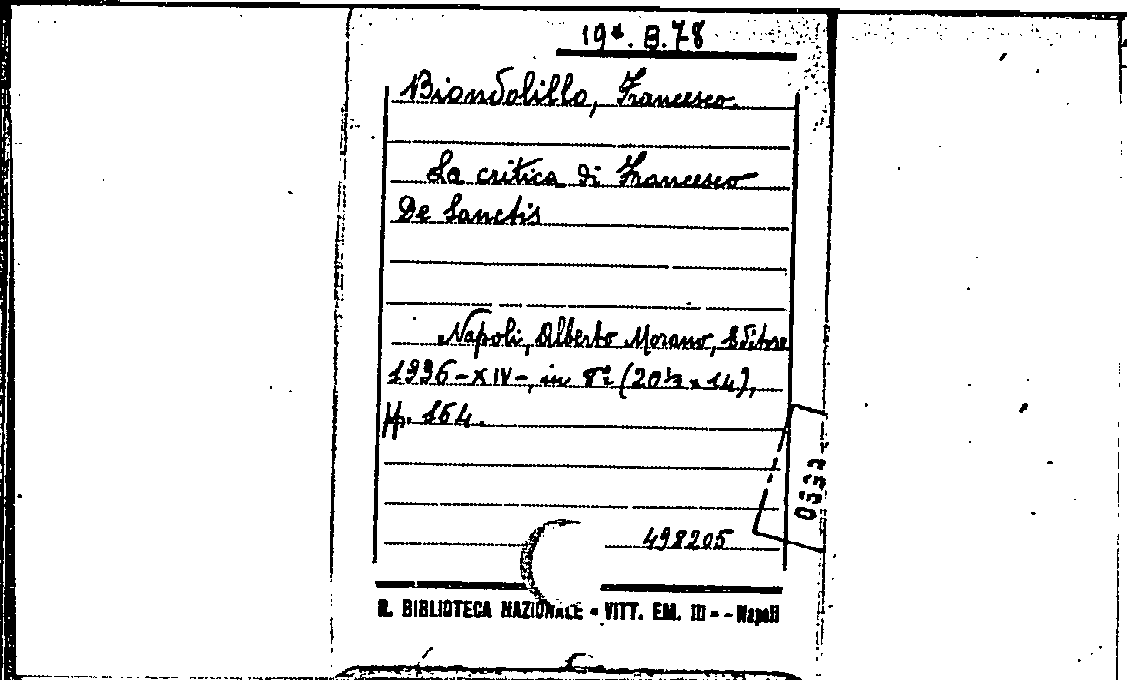 19ª. B. 78
Biondolillo, Francesco.
La critica di Francesco
De Sanctis
Napoli, Alberto Morano, Editore
1936-XIV-, in 8º (20½ x 14),
pp. 164.
498205
R. BIBLIOTECA NAZIONALE - VITT. EM. III - - Napoli